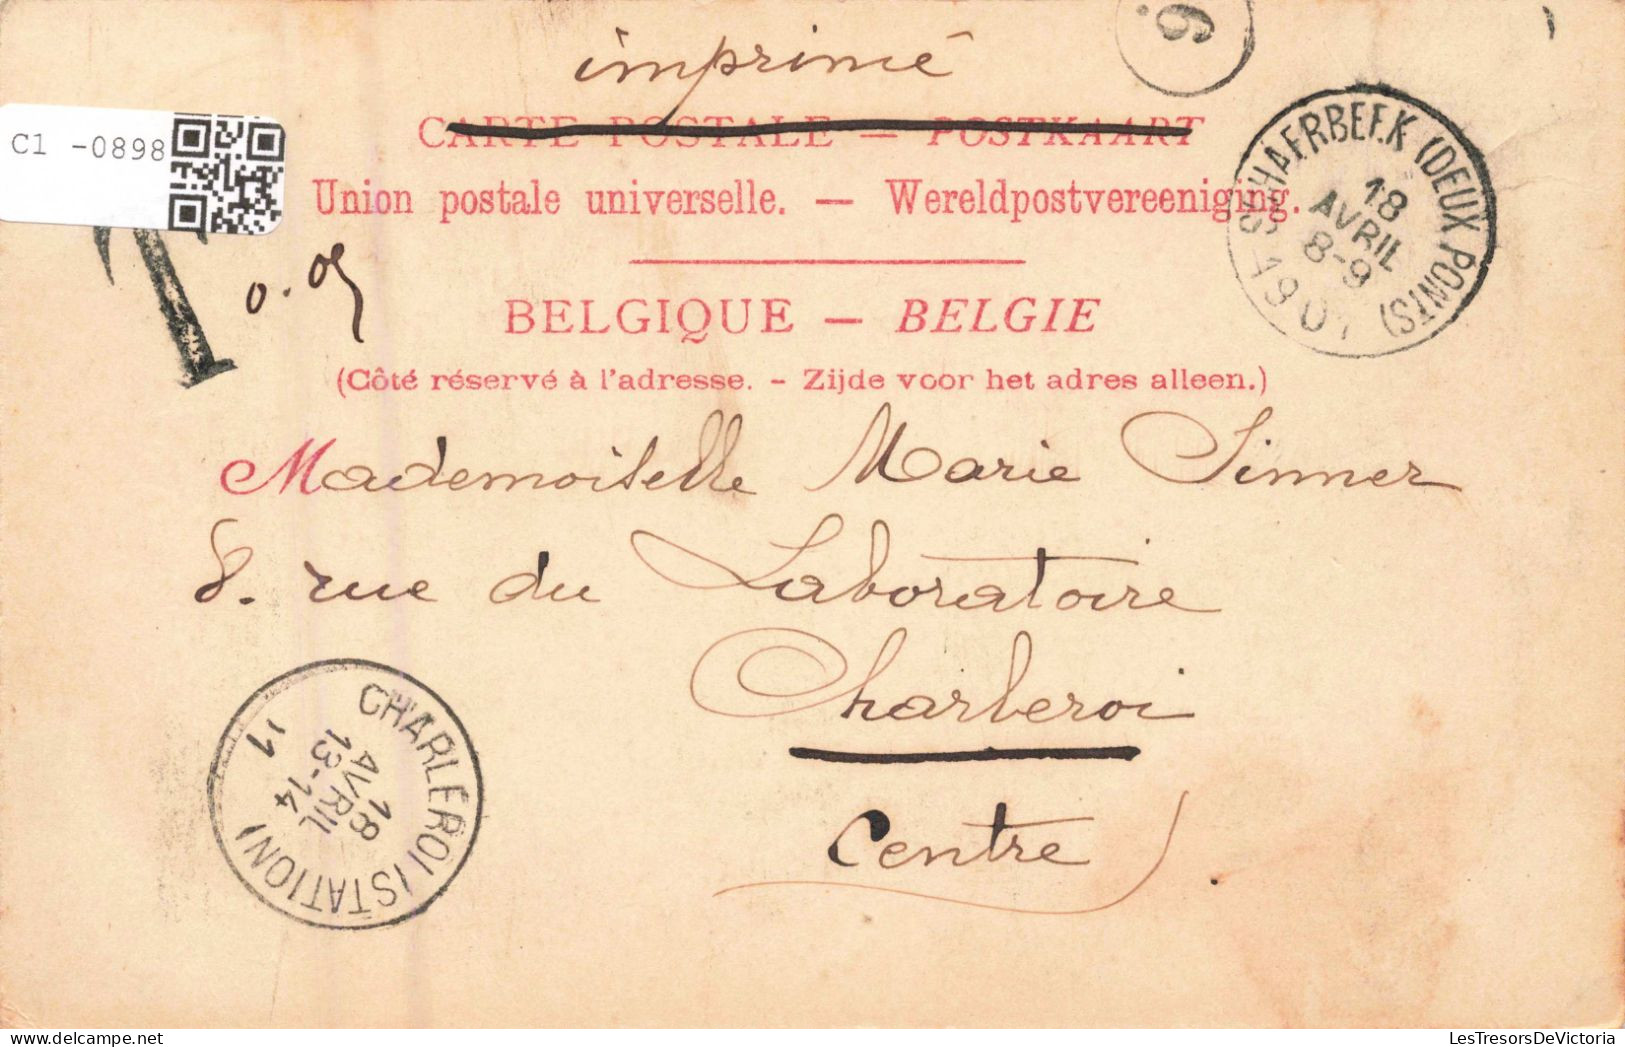 imprimé
6
CARTE POSTALE — POSTKAART
C1 -0898
Union postale universelle. — Wereldpostvereeniging.
SCHAERBEEK (DEUX PONTS)
18
AVRIL
8-9
1901
T
0.05
BELGIQUE — BELGIE
(Côté réservé à l'adresse. - Zijde voor het adres alleen.)
Mademoiselle Marie Sinner
8. rue du Laboratoire
Charleroi
Centre
CHARLEROI (STATION)
11
18
AVRIL
13-14
LesTresorsDeVictoria